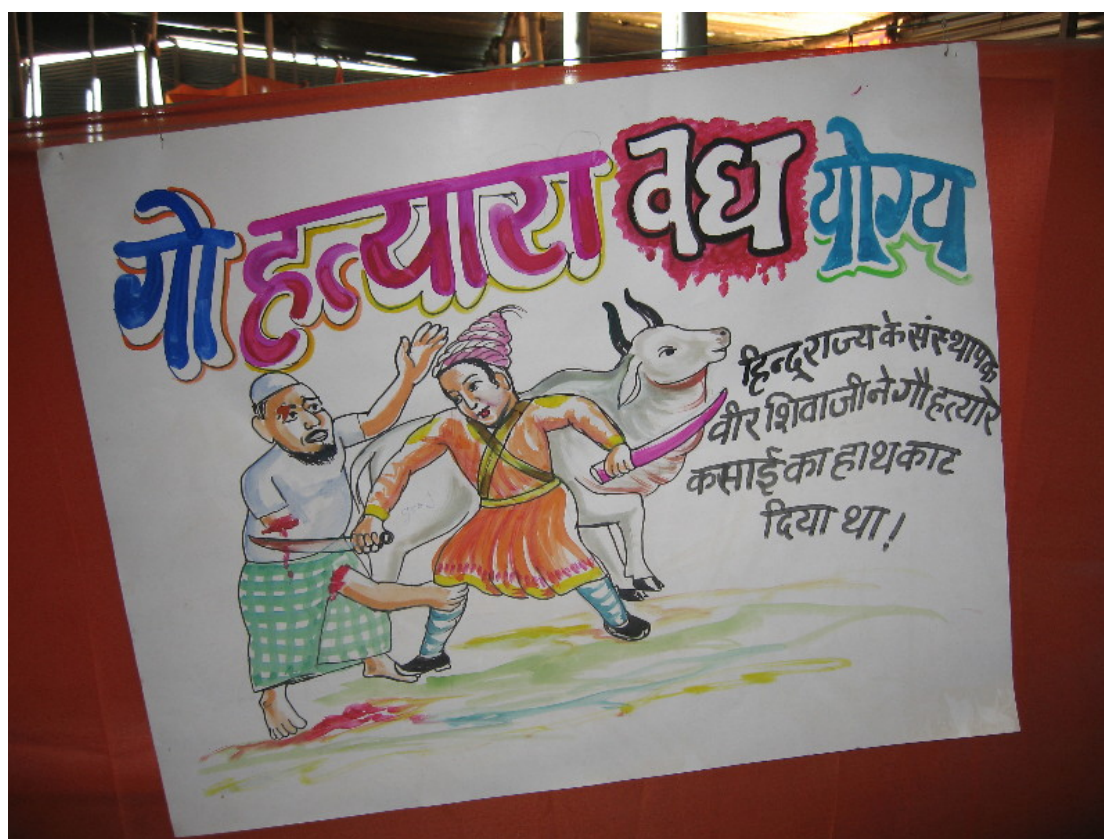 गो हत्यारा वध योग्य
हिन्दू राज्य के संस्थापक
वीर शिवाजी ने गौ हत्यारे
कसाई का हाथ काट
दिया था!